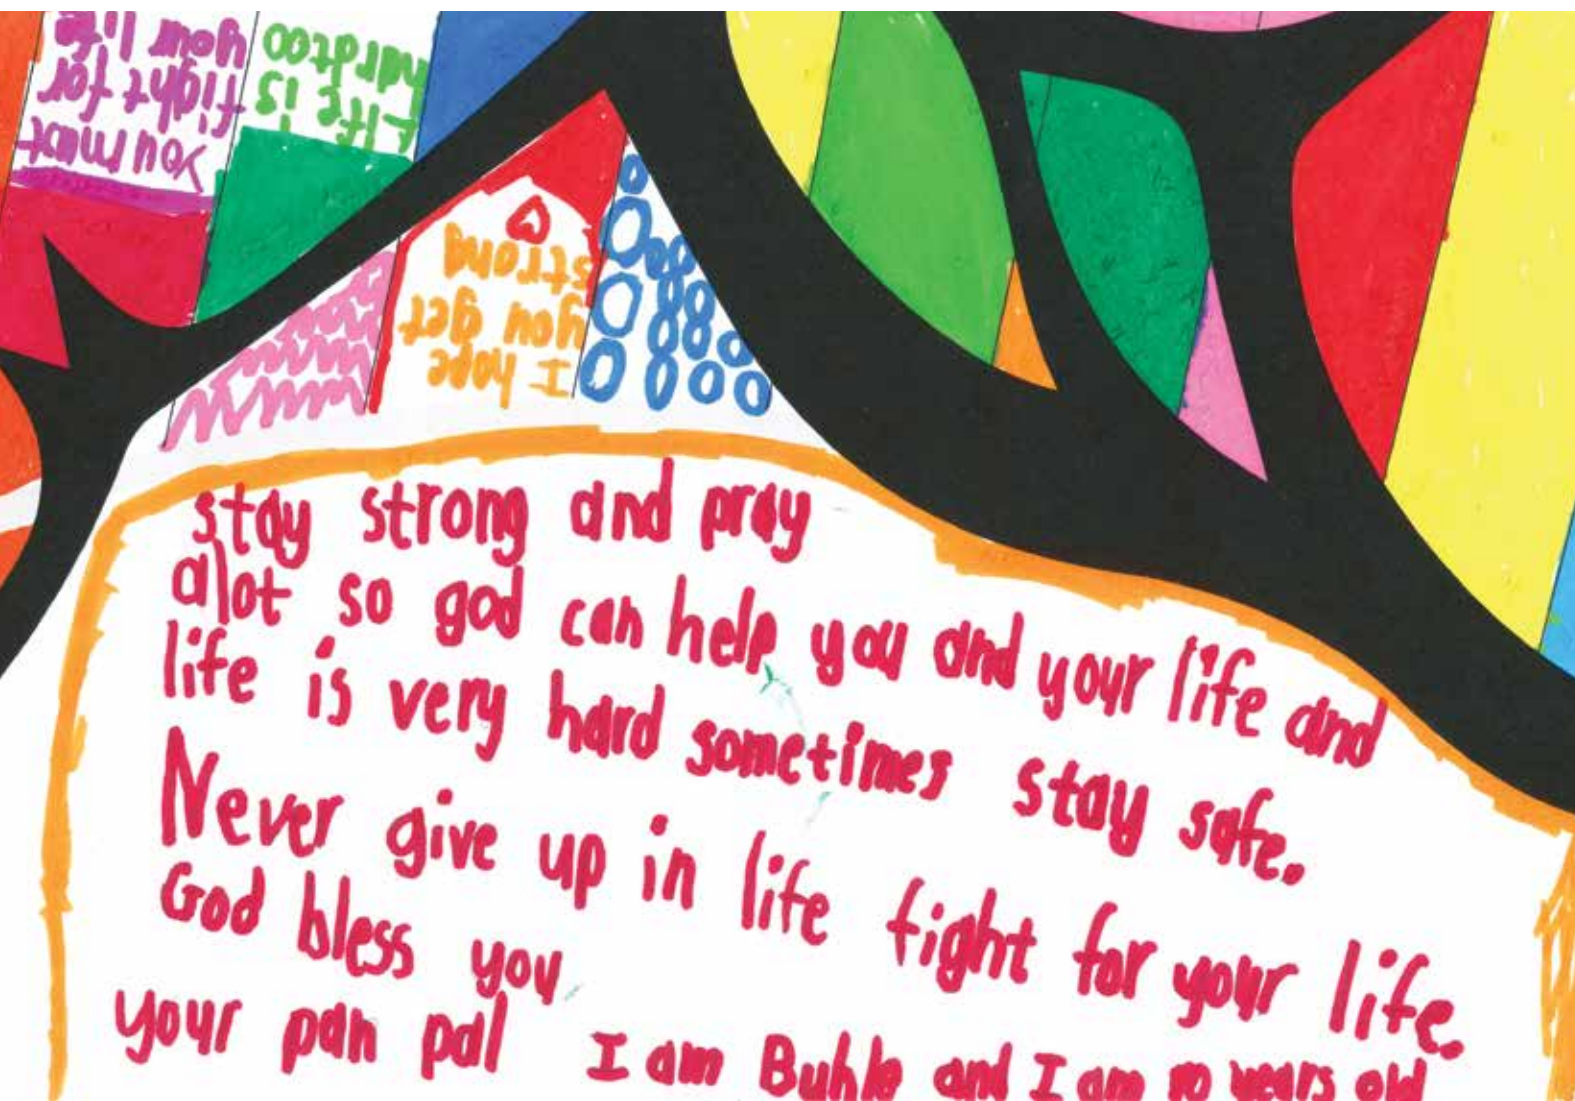 You must
fight for
your life
Life is
hardtoo
I hope
you get
strong
stay strong and pray
alot so god can help you and your life and
life is very hard sometimes stay safe.
Never give up in life fight for your life.
God bless you
your pan pal I am Buhle and I am 10 years old